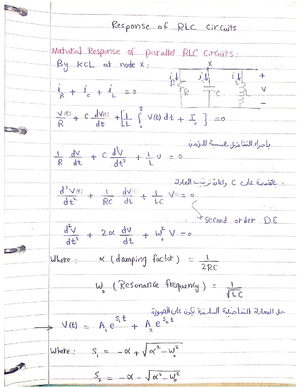 Response of RLC Circuits
Natural Response of parallel RLC Circuits:
By KCL at node X:
X
i_R R i_c C i_L L + V -
i_R + i_c + i_L = 0
V(t)/R + C dV(t)/dt + [1/L ∫ V(t) dt + I_0] = 0
بإجراء التفاضل بالنسبة للزمن
1/R dv/dt + C d²V/dt² + 1/L v = 0
بالقسمة على C وإعادة ترتيب المعادلة
d²V(t)/dt² + 1/RC dV(t)/dt + 1/LC V(t) = 0
→ second order D.E
d²V/dt² + 2α dv/dt + W_0² V = 0
Where: α (damping factor) = 1/2RC
W_0 (Resonance frequency) = 1/√LC
حل المعادلة التفاضلية السابقة يكون على الصورة
V(t) = A_1 e^{S_1 t} + A_2 e^{S_2 t}
Where: S_1 = -α + √α² - W_0²
S_2 = -α - √α² - W_0²